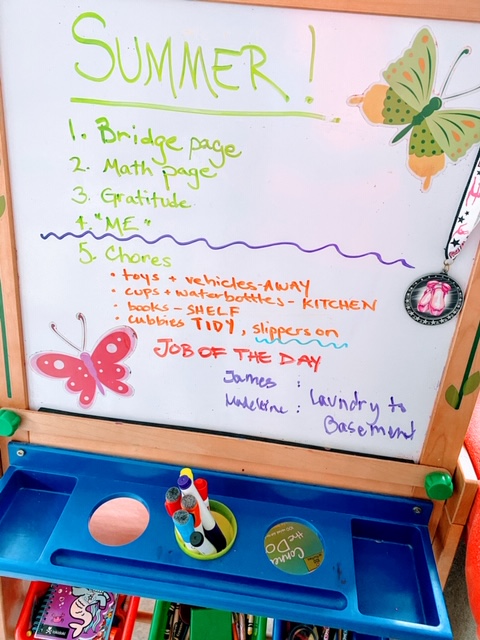 SUMMER!
1. Bridge page
2. Math page
3. Gratitude
4. "ME"
5. Chores
• toys + vehicles-AWAY
• cups + waterbottles - KITCHEN
• books - SHELF
• cubbies TIDY, slippers on
JOB OF THE DAY
James :
Madeleine : Laundry to
Basement
Connec
the Do